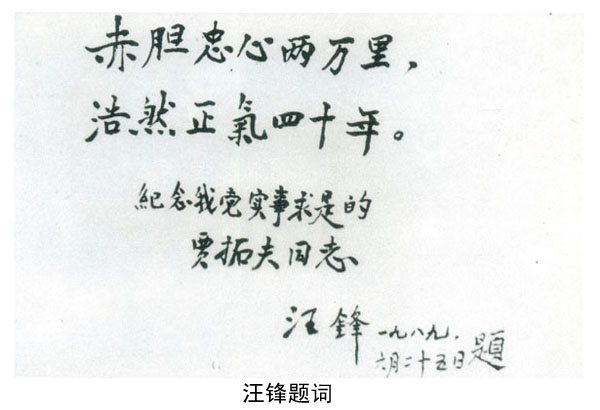 赤胆忠心两万里，
浩然正氣四十年。
紀念我党实事求是的
贾拓夫同志
汪鋒 一九八九.
六月二十五日題
汪锋题词